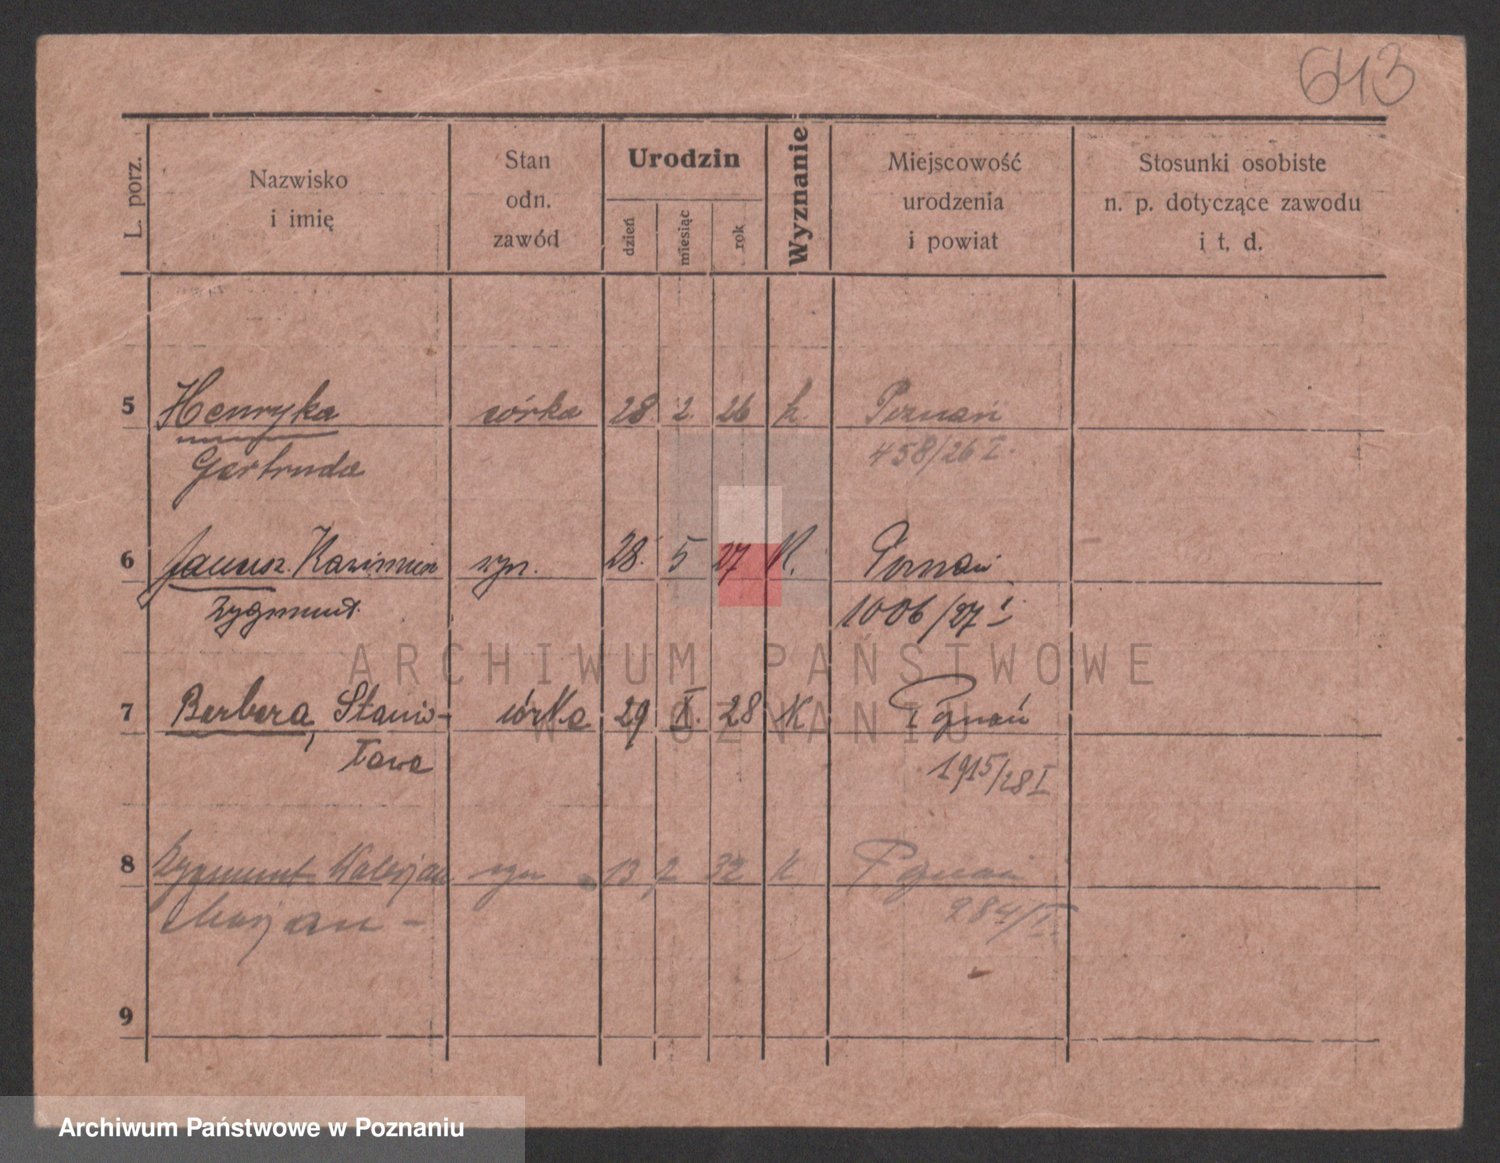 643
L. porz.
Nazwisko
i imię
Stan
odn.
zawód
Urodzin
dzień
miesiąc
rok
Wyznanie
Miejscowość
urodzenia
i powiat
Stosunki osobiste
n. p. dotyczące zawodu
i t. d.
5 Henryka córka 28. 2. 26 k. Poznań
Gertruda 458/26 I.
6 Janusz Kazimierz syn. 28. 5 27 K. Poznań
Zygmunt 1006/27 I
ARCHIWUM PAŃSTWOWE
W POZNANIU
7 Barbara, Stanis- córka 29 X. 28 K Poznań
ława 1915/28 I
8 Zygmunt Walerjan syn 13 2 32 k Poznań
Marjan - 284/I
9
Archiwum Państwowe w Poznaniu